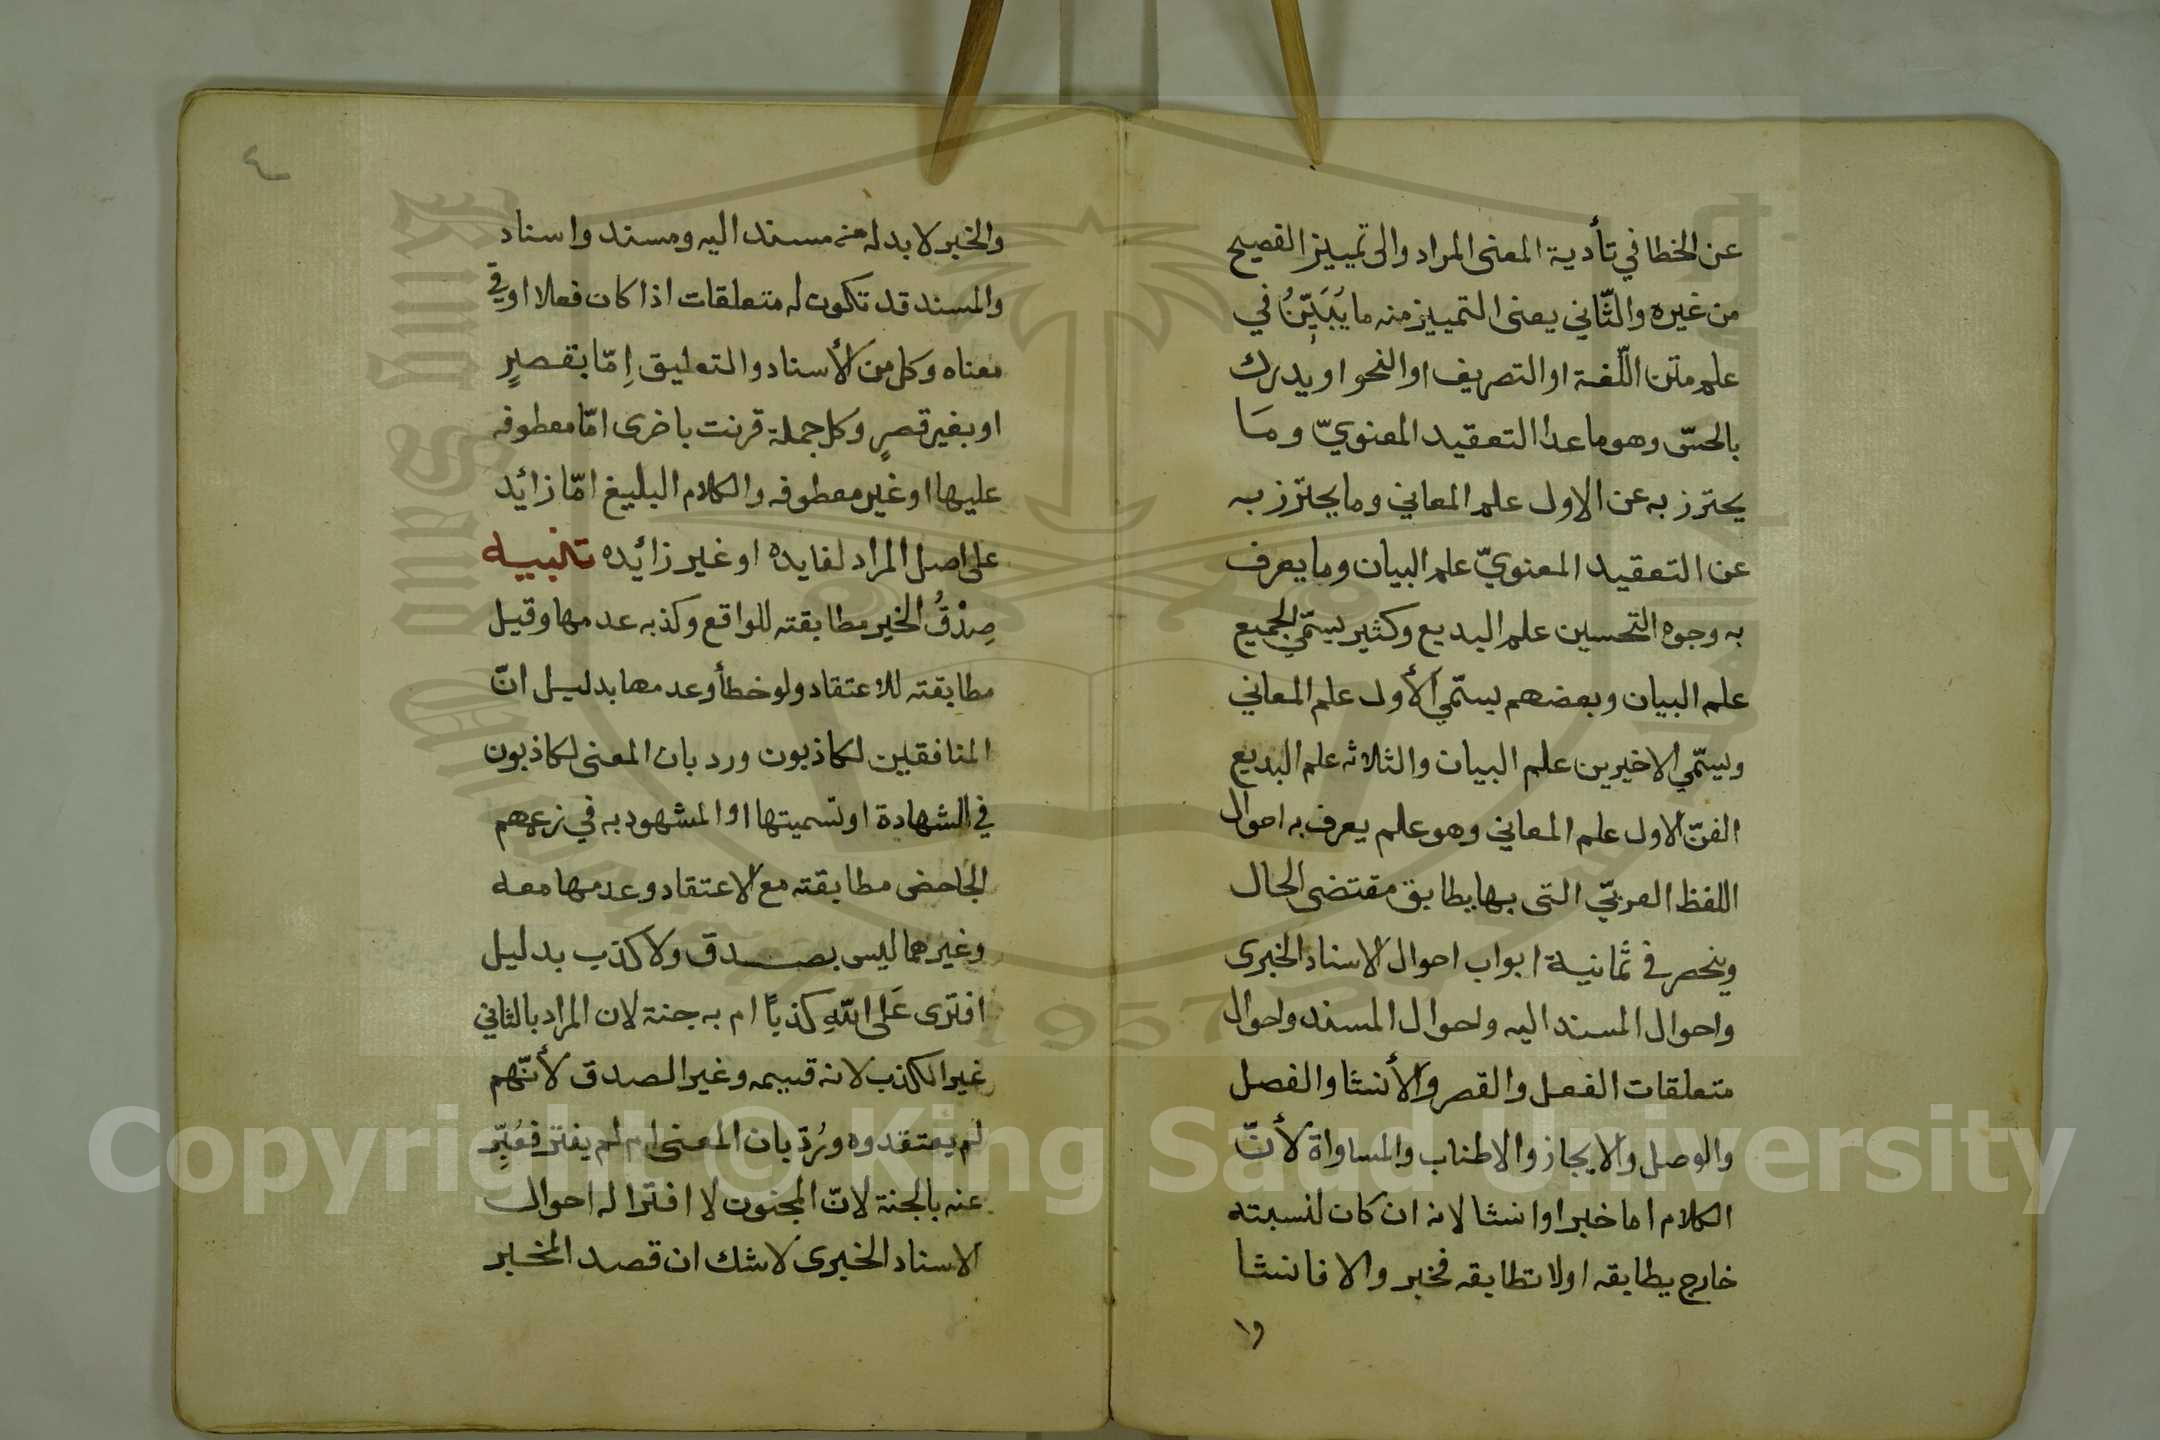 عن الخطا في تأدية المعنى المراد والى تمييز الفصيح
من غيره والثّاني يعنى التمييز منه ما يُبَيّنُ في
علم متن اللّغة او التصريف او النحو او يدرك
بالحسّ وهو ما عدا التعقيد المعنويّ ومَا
يحترز به عن الاول علم المعاني وما يحترز به
عن التعقيد المعنويّ علم البيان وما يعرف
به وجوه التحسين علم البديع وكثير يسمّي الجميع
علم البيان وبعضهم يسمّي الأول علم المعاني
ويسمّي الاخيرين علم البيان والثلاثه علم البديع
الفنّ الاول علم المعاني وهو علم يعرف به احوال
اللفظ العربّي التى بها يطابق مقتضى الحال
وينحصر في ثمانية ابواب احوال الاسناد الخبرى
واحوال المسند اليه واحوال المسند واحوال
متعلقات الفعل والقصر والأنشا والفصل
والوصل والايجاز والاطناب والمساواة لأنّ
الكلام اما خبر او انشا لانه ان كان لنسبته
خارج يطابقه او لا تطابقه فخبر والا فانشا
٤
والخبر لا بد له من مسند اليه ومسند واسناد
والمسند قد تكون له متعلقات اذا كان فعلا او في
معناه وكل من الأسناد والتعليق اِمّا بقصرٍ
او بغير قصرٍ وكل جملة قرنت باخرى امّا معطوفه
عليها او غير معطوفه والكلام البليغ امّا زائد
على اصل المراد لفايده او غير زائده تنبيه
صِدْقُ الخبر مطابقته للواقع وكذبه عدمها وقيل
مطابقته للاعتقاد ولو خطأ وعدمها بدليل انّ
المنافقين لكاذبون ورد بان المعنى لكاذبون
في الشهادة او تسميتها او المشهود به في زعمهم
الجاحض مطابقته مع الاعتقاد وعدمها معه
وغيرهما ليس بصدق ولا كذب بدليل
افترى عَلى اللّهِ كذبًا ام به جنة لان المراد بالثاني
غير الكذب لانه قسيمه وغير الصدق لأنّهم
لم يعتقدوه ورُدّ بان المعنى ام لم يفتر فعُبِّر
عنه بالجنة لانّ المجنون لا افترا له احوال
الاسناد الخبرى لا شك ان قصد المخبر
Copyright © King Saud University
King Saud University
1957